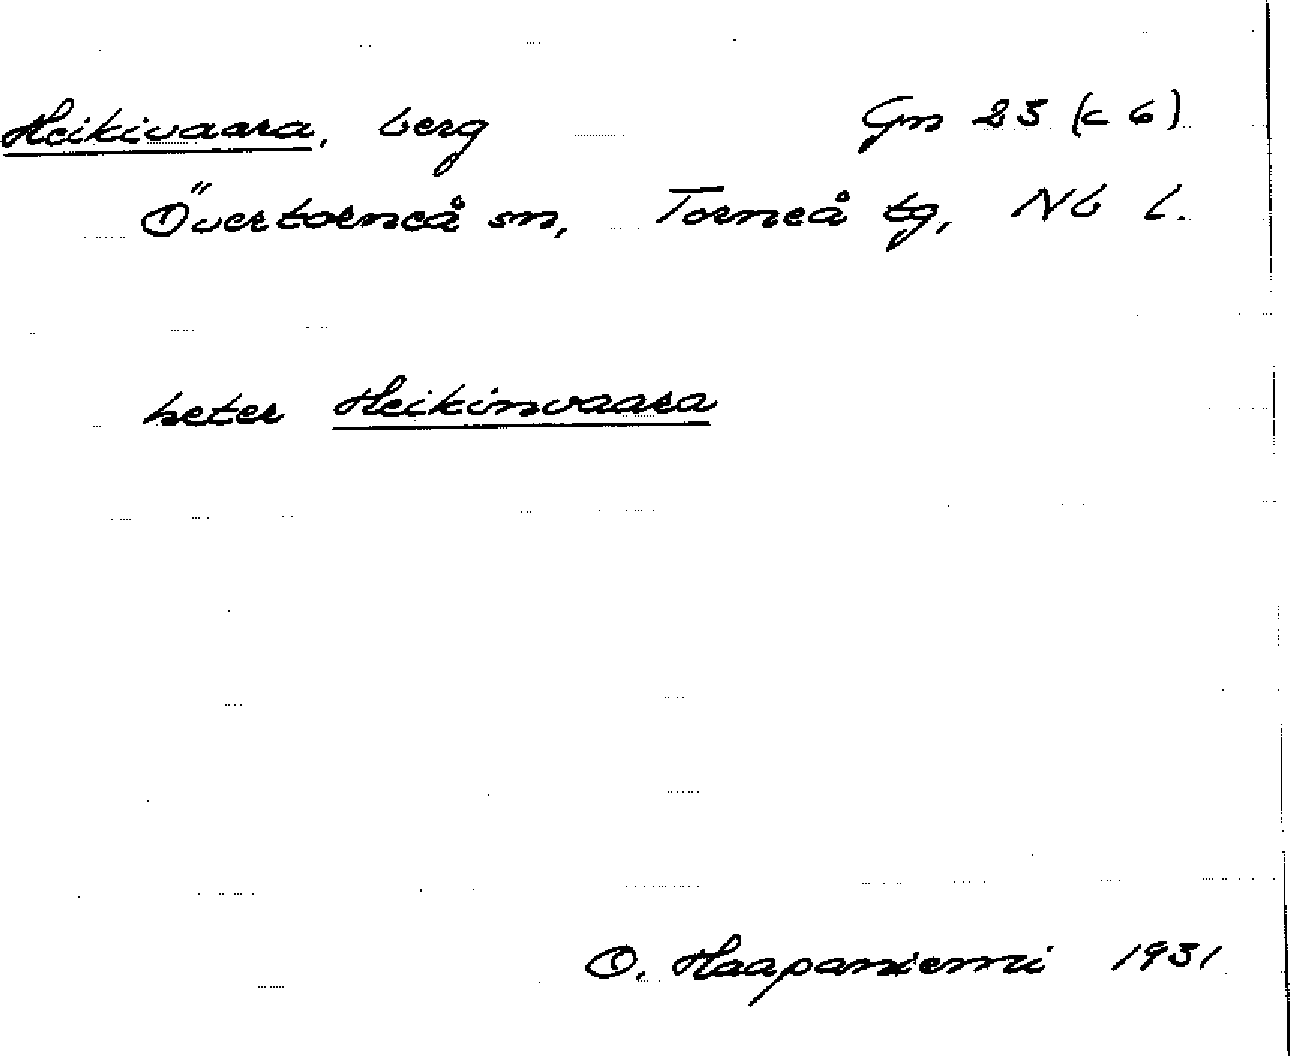 Heikivaara, berg Gn 23 (c 6)
Övertorneå sn, Torneå tg, Nb l.
heter Heikinvaara
O. Haapaniemi 1931